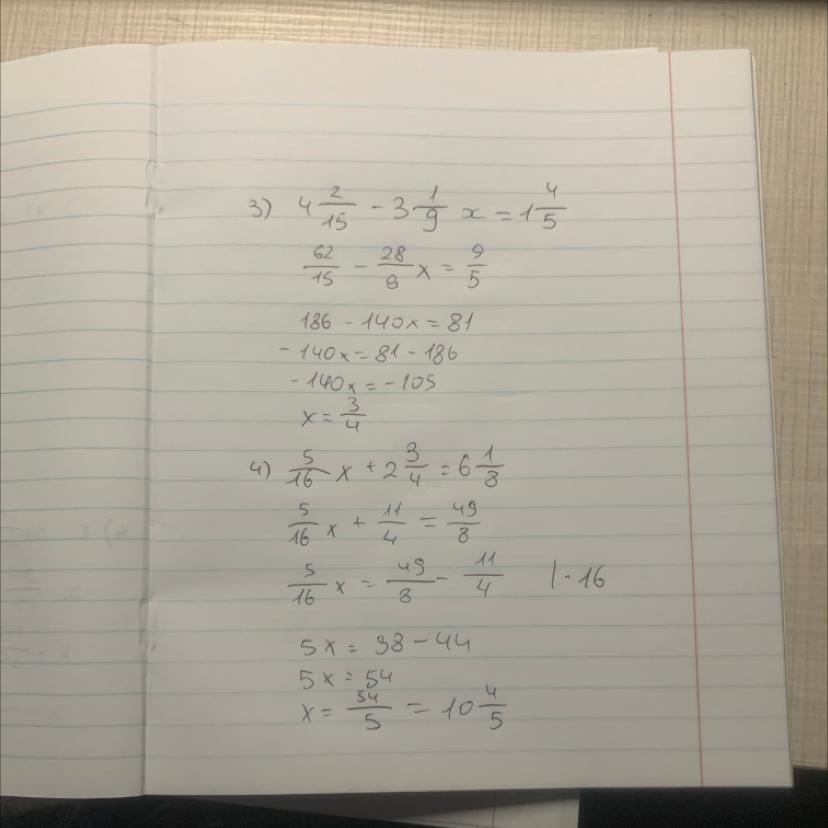 3) 4 2/15 - 3 1/9 x = 1 4/5
62/15 - 28/9 x = 9/5
186 - 140x = 81
- 140x = 81 - 186
- 140x = - 105
x = 3/4
4) 5/16 x + 2 3/4 = 6 1/8
5/16 x + 11/4 = 49/8
5/16 x = 49/8 - 11/4 | · 16
5x = 98 - 44
5x = 54
x = 54/5 = 10 4/5